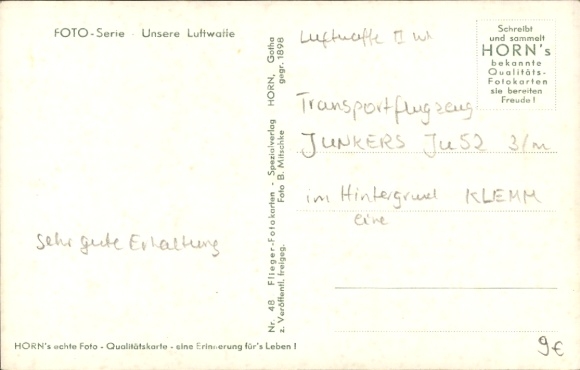 FOTO-Serie · Unsere Luftwaffe
Sehr gute Erhaltung
HORN's echte Foto - Qualitätskarte - eine Erinnerung für's Leben!
Nr. 48 Flieger-Fotokarten - Spezialverlag HORN, Gotha
z. Veröffentl. freigeg. Foto B. Mitschke gegr. 1898
Luftwaffe II WK
Transportflugzeug
JUNKERS Ju52 3/m
im Hintergrund KLEMM
eine
Schreibt
und sammelt
HORN's
bekannte
Qualitäts-
Fotokarten
sie bereiten
Freude!
9€